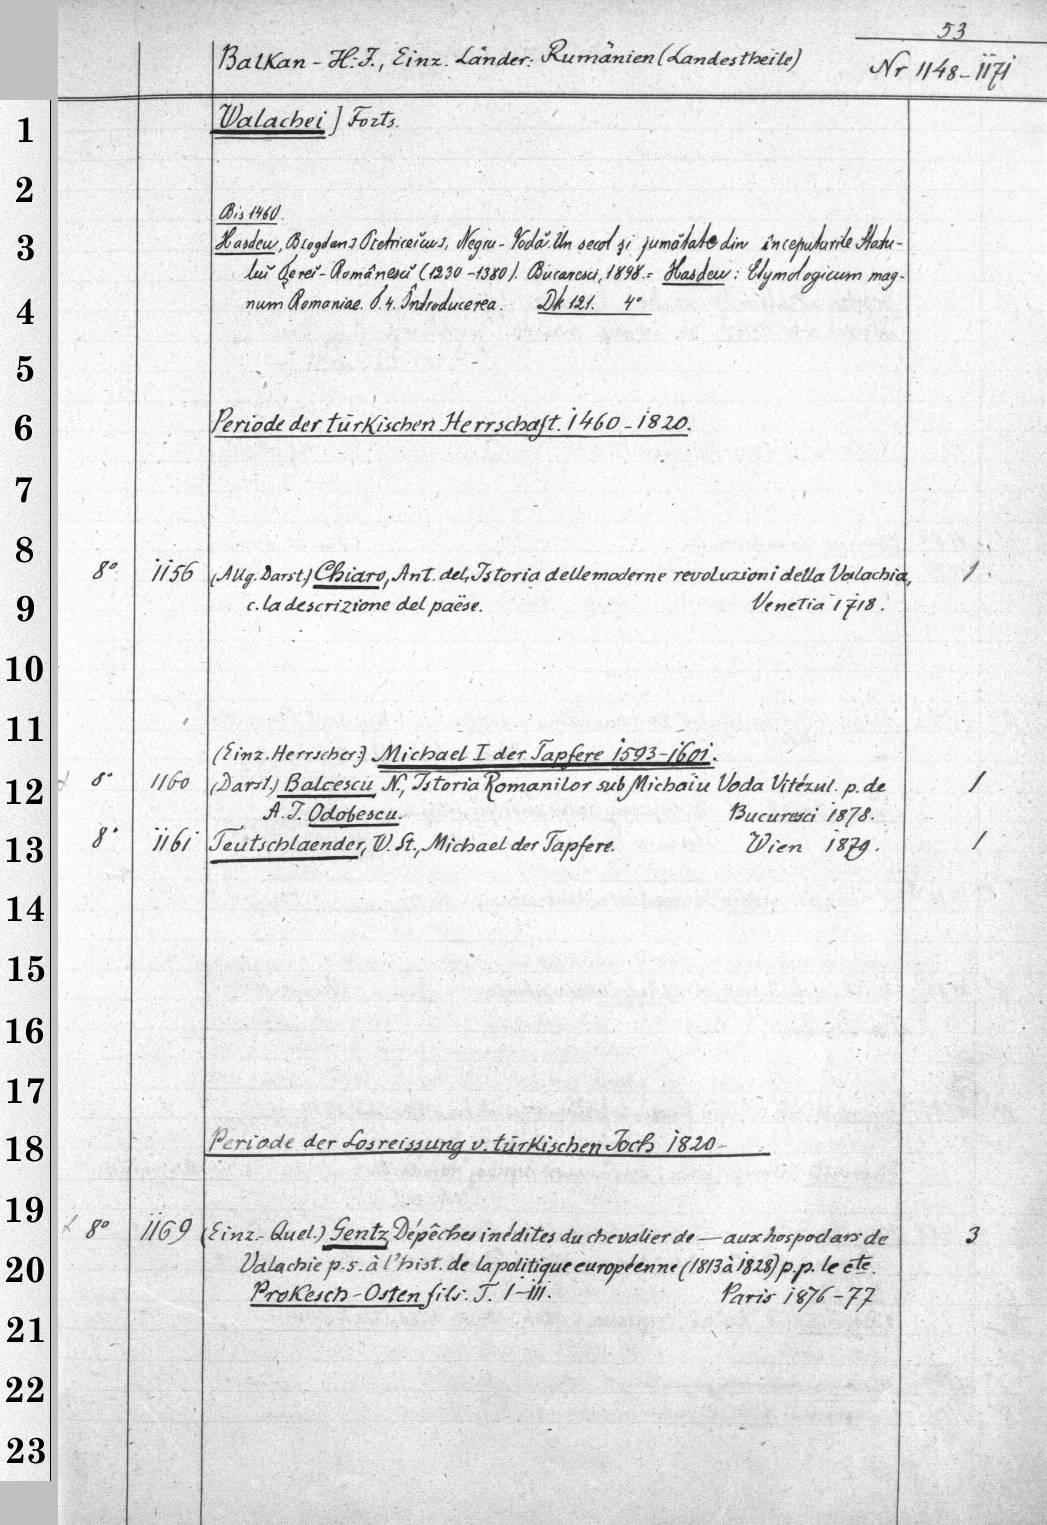 53
Balkan - H: J., Einz. Länder: Rumänien (Landestheile)
Nr 1148-1171
1
Walachei] Forts.
2
Bis 1460.
3
Hasdeu, Bogdan Petriceicu, Negru-Vodă. Un secol și jumătate din începuturile Statu-
luĭ Țereĭ-Românescĭ (1230-1380). Bucuresci, 1898.= Hasdeu: Etymologicum mag-
4
num Romaniae. T. 4. Introducerea. Dk 121. 4°
5
6
Periode der türkischen Herrschaft. 1460-1820.
7
8
8° 1156 (Allg. Darst.) Chiaro, Ant. del, Istoria delle moderne revoluzioni della Valachia, 1
9
c. la descrizione del paëse. Venetia 1718.
10
11
(Einz. Herrscher:) Michael I der Tapfere 1593-1601.
12
8° 1160 (Darst.) Balcescu, N., Istoria Romanilor sub Michaiu Voda Vitézul. p. de 1
A. I. Odobescu. Bucuresci 1878.
13
8° 1161 Teutschlaender, W. St., Michael der Tapfere. Wien 1879. 1
14
15
16
17
18
Periode der Losreissung v. türkischen Joch 1820-
19
8° 1169 (Einz.- Quel.) Gentz, Dépêches inédites du chevalier de — aux hospodars de 3
20
Valachie p. s. à l'hist. de la politique européenne (1813 à 1828) p. p. le cte.
Prokesch-Osten fils. T. I-III. Paris 1876-77
21
22
23